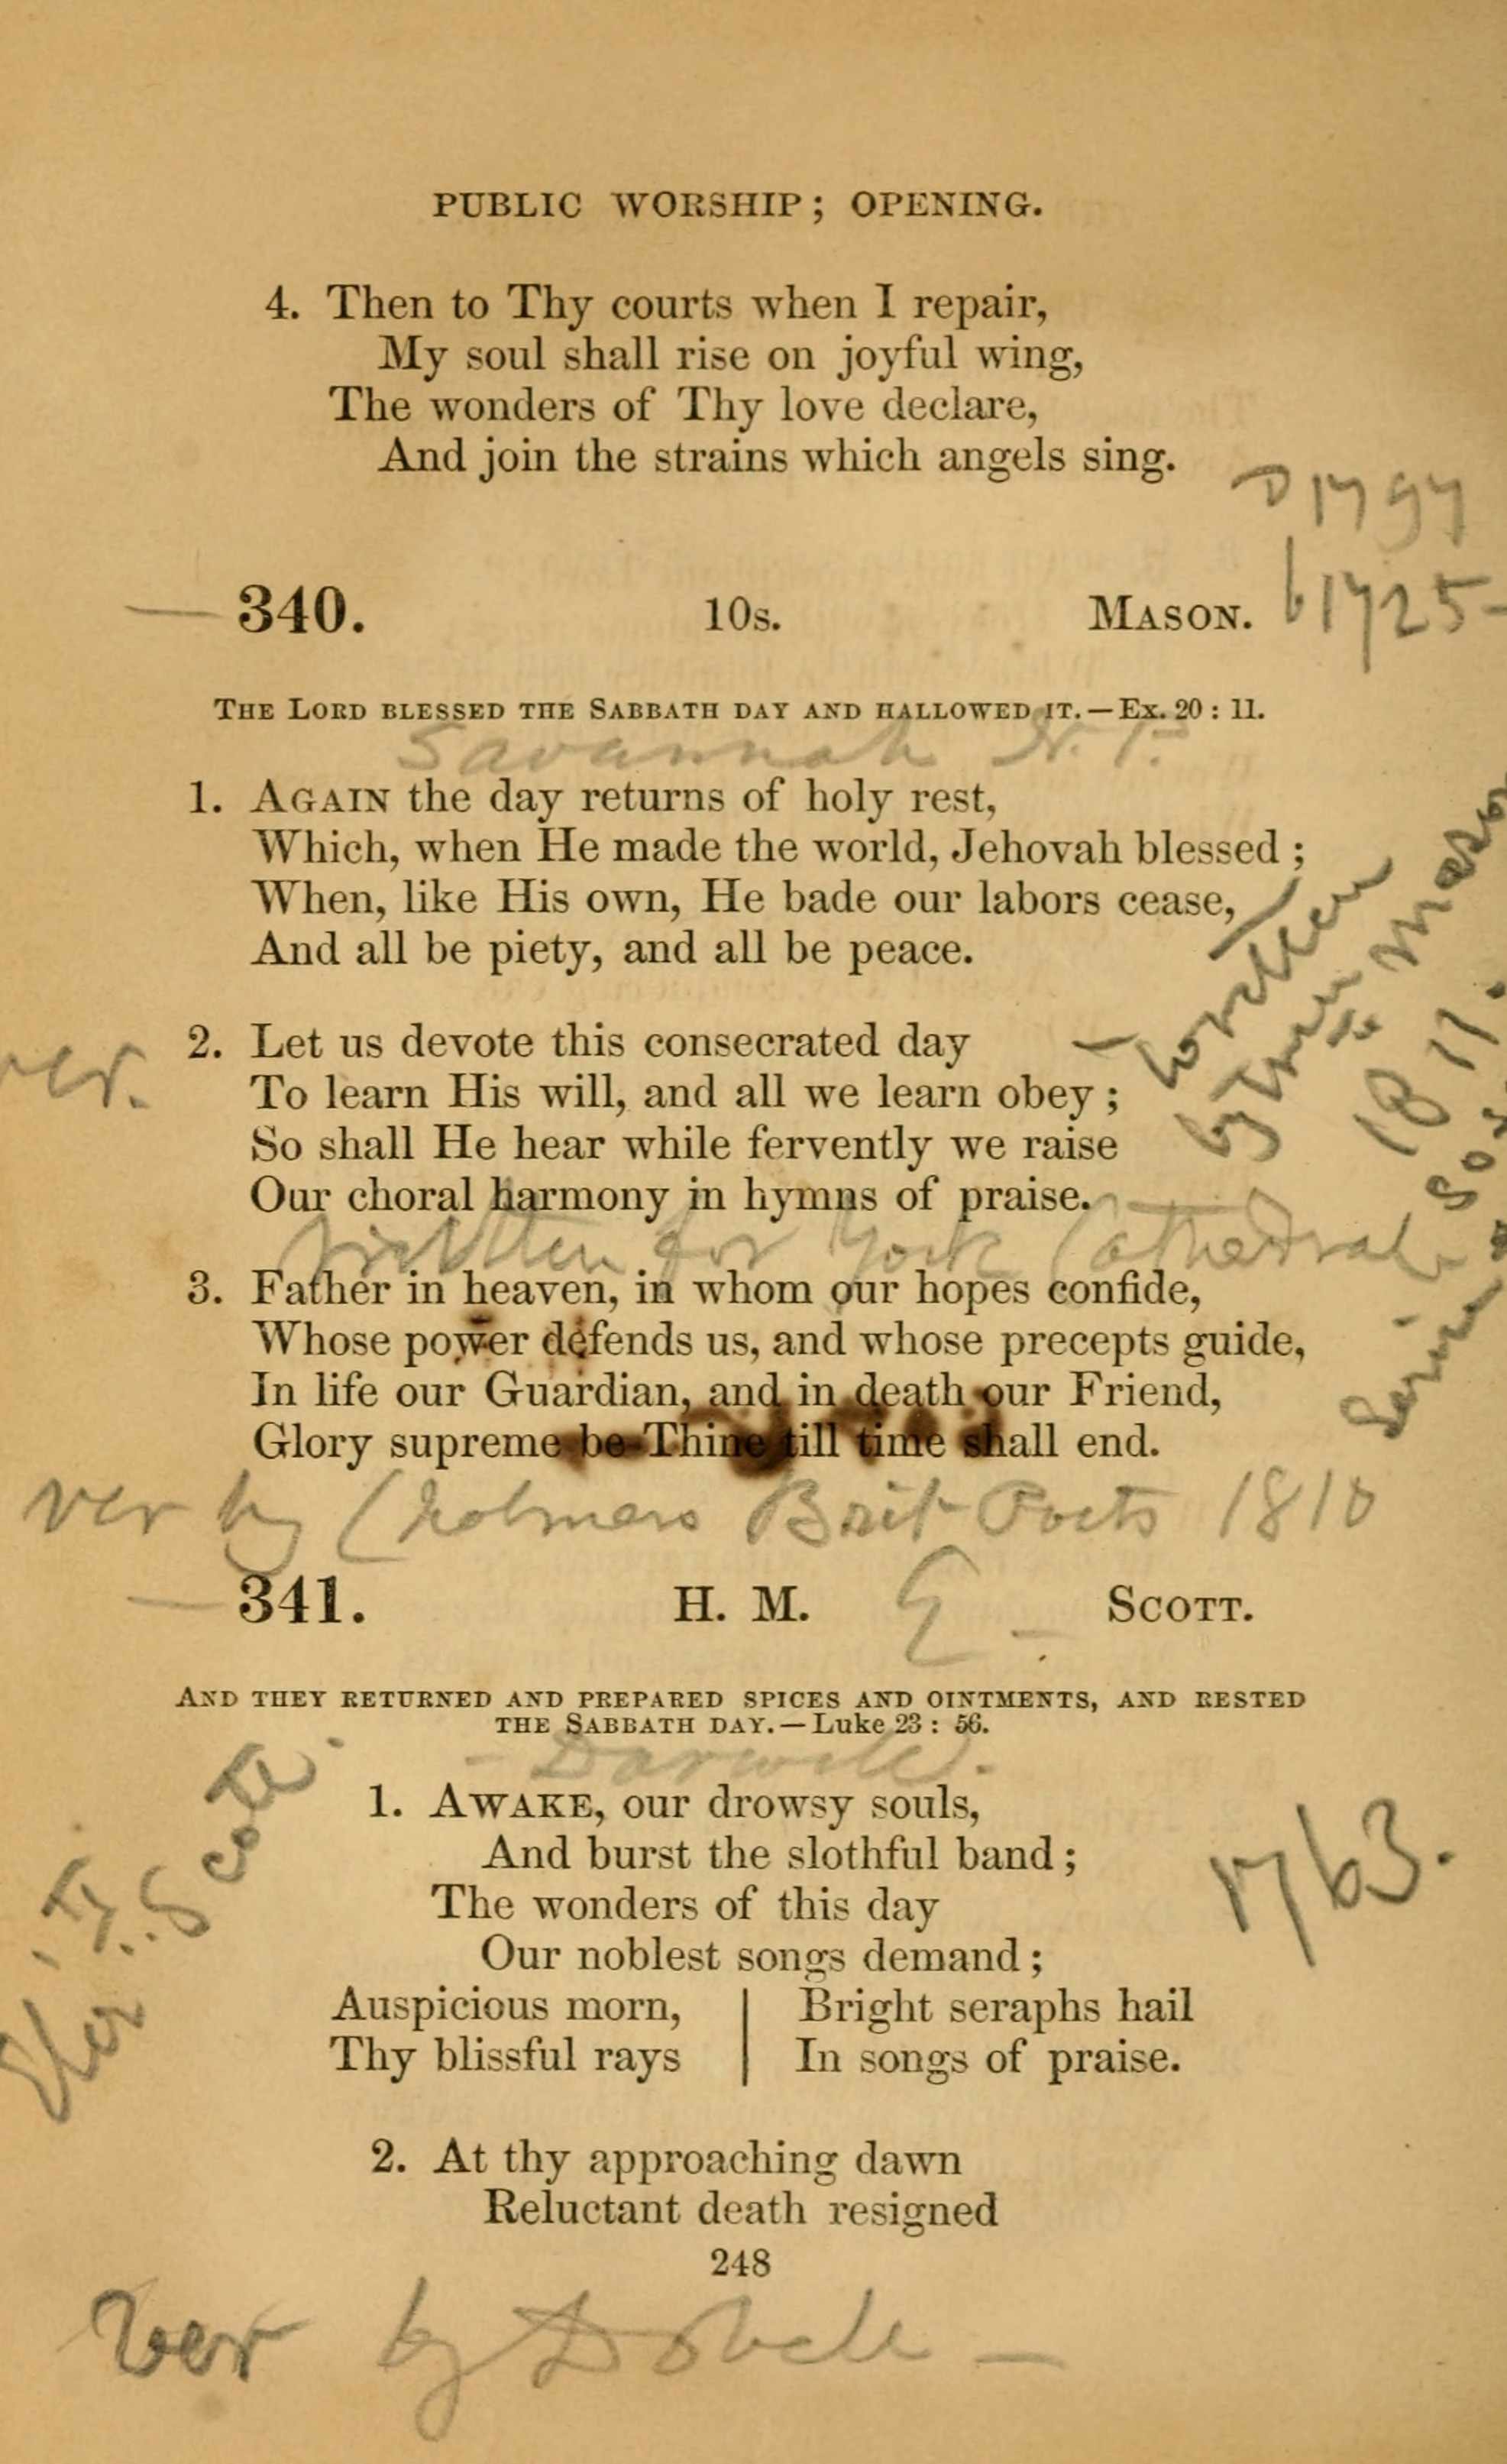 PUBLIC WORSHIP; OPENING.
4. Then to Thy courts when I repair,
My soul shall rise on joyful wing,
The wonders of Thy love declare,
And join the strains which angels sing.
D 1797
340. 10s. MASON. b 1725-
THE LORD BLESSED THE SABBATH DAY AND HALLOWED IT.—Ex. 20 : 11.
Savannah
1. AGAIN the day returns of holy rest,
Which, when He made the world, Jehovah blessed ;
When, like His own, He bade our labors cease,
And all be piety, and all be peace.
2. Let us devote this consecrated day
ver.
To learn His will, and all we learn obey ;
So shall He hear while fervently we raise
Our choral harmony in hymns of praise.
Written
by
Mason
1811.
written for York Cathedral
3. Father in heaven, in whom our hopes confide,
Whose power defends us, and whose precepts guide,
In life our Guardian, and in death our Friend,
Glory supreme be Thine till time shall end.
ver by Chalmers Brit Poets 1810
341. H. M. SCOTT.
AND THEY RETURNED AND PREPARED SPICES AND OINTMENTS, AND RESTED
THE SABBATH DAY.—Luke 23 : 56.
- Darwell.
1. AWAKE, our drowsy souls,
And burst the slothful band ;
The wonders of this day
Our noblest songs demand ;
Auspicious morn, | Bright seraphs hail
Thy blissful rays | In songs of praise.
Scott
1763.
2. At thy approaching dawn
Reluctant death resigned
248
ver by Dobell —